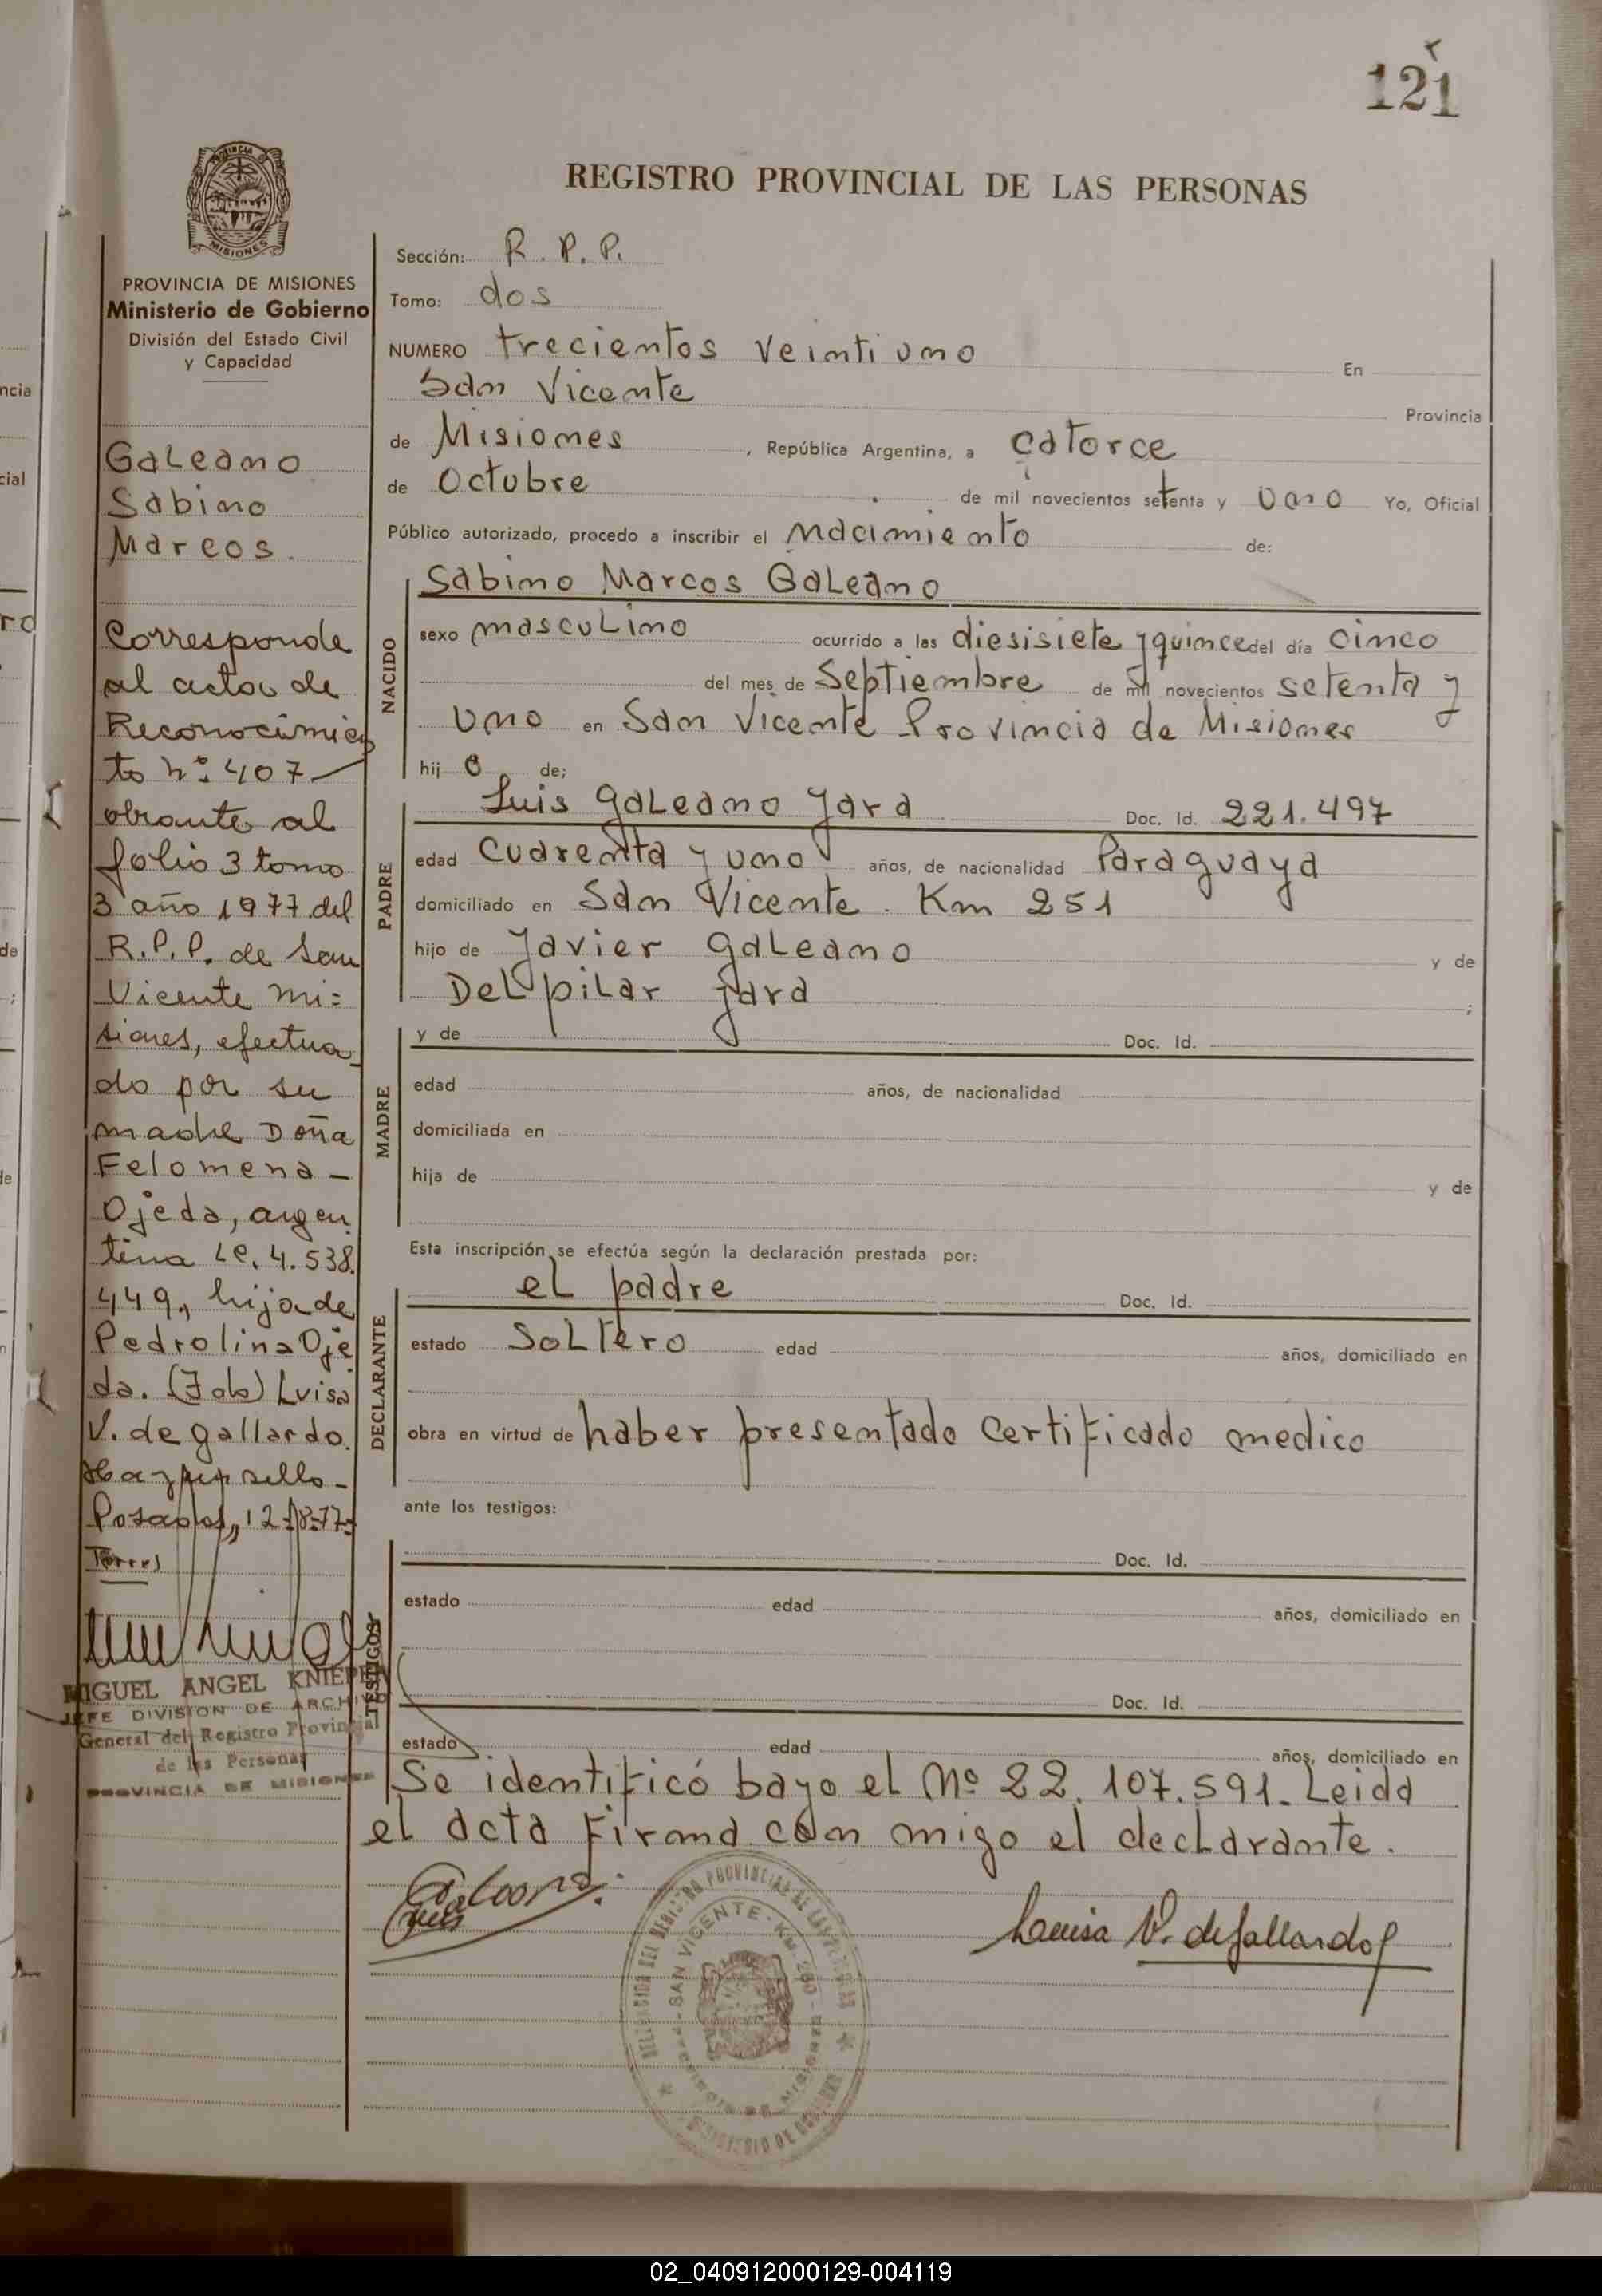 121
REGISTRO PROVINCIAL DE LAS PERSONAS
PROVINCIA DE MISIONES
Ministerio de Gobierno
División del Estado Civil
y Capacidad
Galeano
Sabino
Marcos.
Corresponde
al acta de
Reconocimien
to Nº 407
obrante al
folio 3 tomo
3 año 1977 del
R.P.P. de San
Vicente Mi=
siones, efectua
do por su
madre Doña
Felomena -
Ojeda, argen
tina LC. 4.538.
449, hija de
Pedrolina Oje
da. (Fdo) Luisa
V. de gallardo.
Hay un sello -
Posadas, 12-8-77-
Torres
MIGUEL ANGEL
JEFE DIVISION DE ARCHIVO
General del Registro Provincial
de las Personas
PROVINCIA DE MISIONES
Sección: R. P. P.
Tomo: dos
NUMERO trecientos veinti uno En
San Vicente Provincia
de Misiones, República Argentina, a catorce
de Octubre de mil novecientos setenta y uno Yo, Oficial
Público autorizado, procedo a inscribir el nacimiento de:
NACIDO
Sabino Marcos Galeano
sexo masculino ocurrido a las diesisiete y quince del día cinco
del mes de Septiembre de mil novecientos setenta y
uno en San Vicente Provincia de Misiones
hij o de;
PADRE
Luis Galeano Jara Doc. Id. 221.497
edad cuarenta y uno años, de nacionalidad Paraguaya
domiciliado en San Vicente. Km 251
hijo de Javier Galeano y de
Del pilar jara ;
MADRE
y de Doc. Id.
edad años, de nacionalidad
domiciliada en
hija de y de
Esta inscripción se efectúa según la declaración prestada por:
DECLARANTE
el padre Doc. Id.
estado Soltero edad años, domiciliado en
obra en virtud de haber presentado certificado medico
ante los testigos:
TESTIGOS
Doc. Id.
estado edad años, domiciliado en
Doc. Id.
estado edad años, domiciliado en
Se identificó bajo el Nº 22.107.591. Leida
el acta firma con migo el declarante.
Luisa V. de Gallardo
SAN VICENTE
02_040912000129-004119